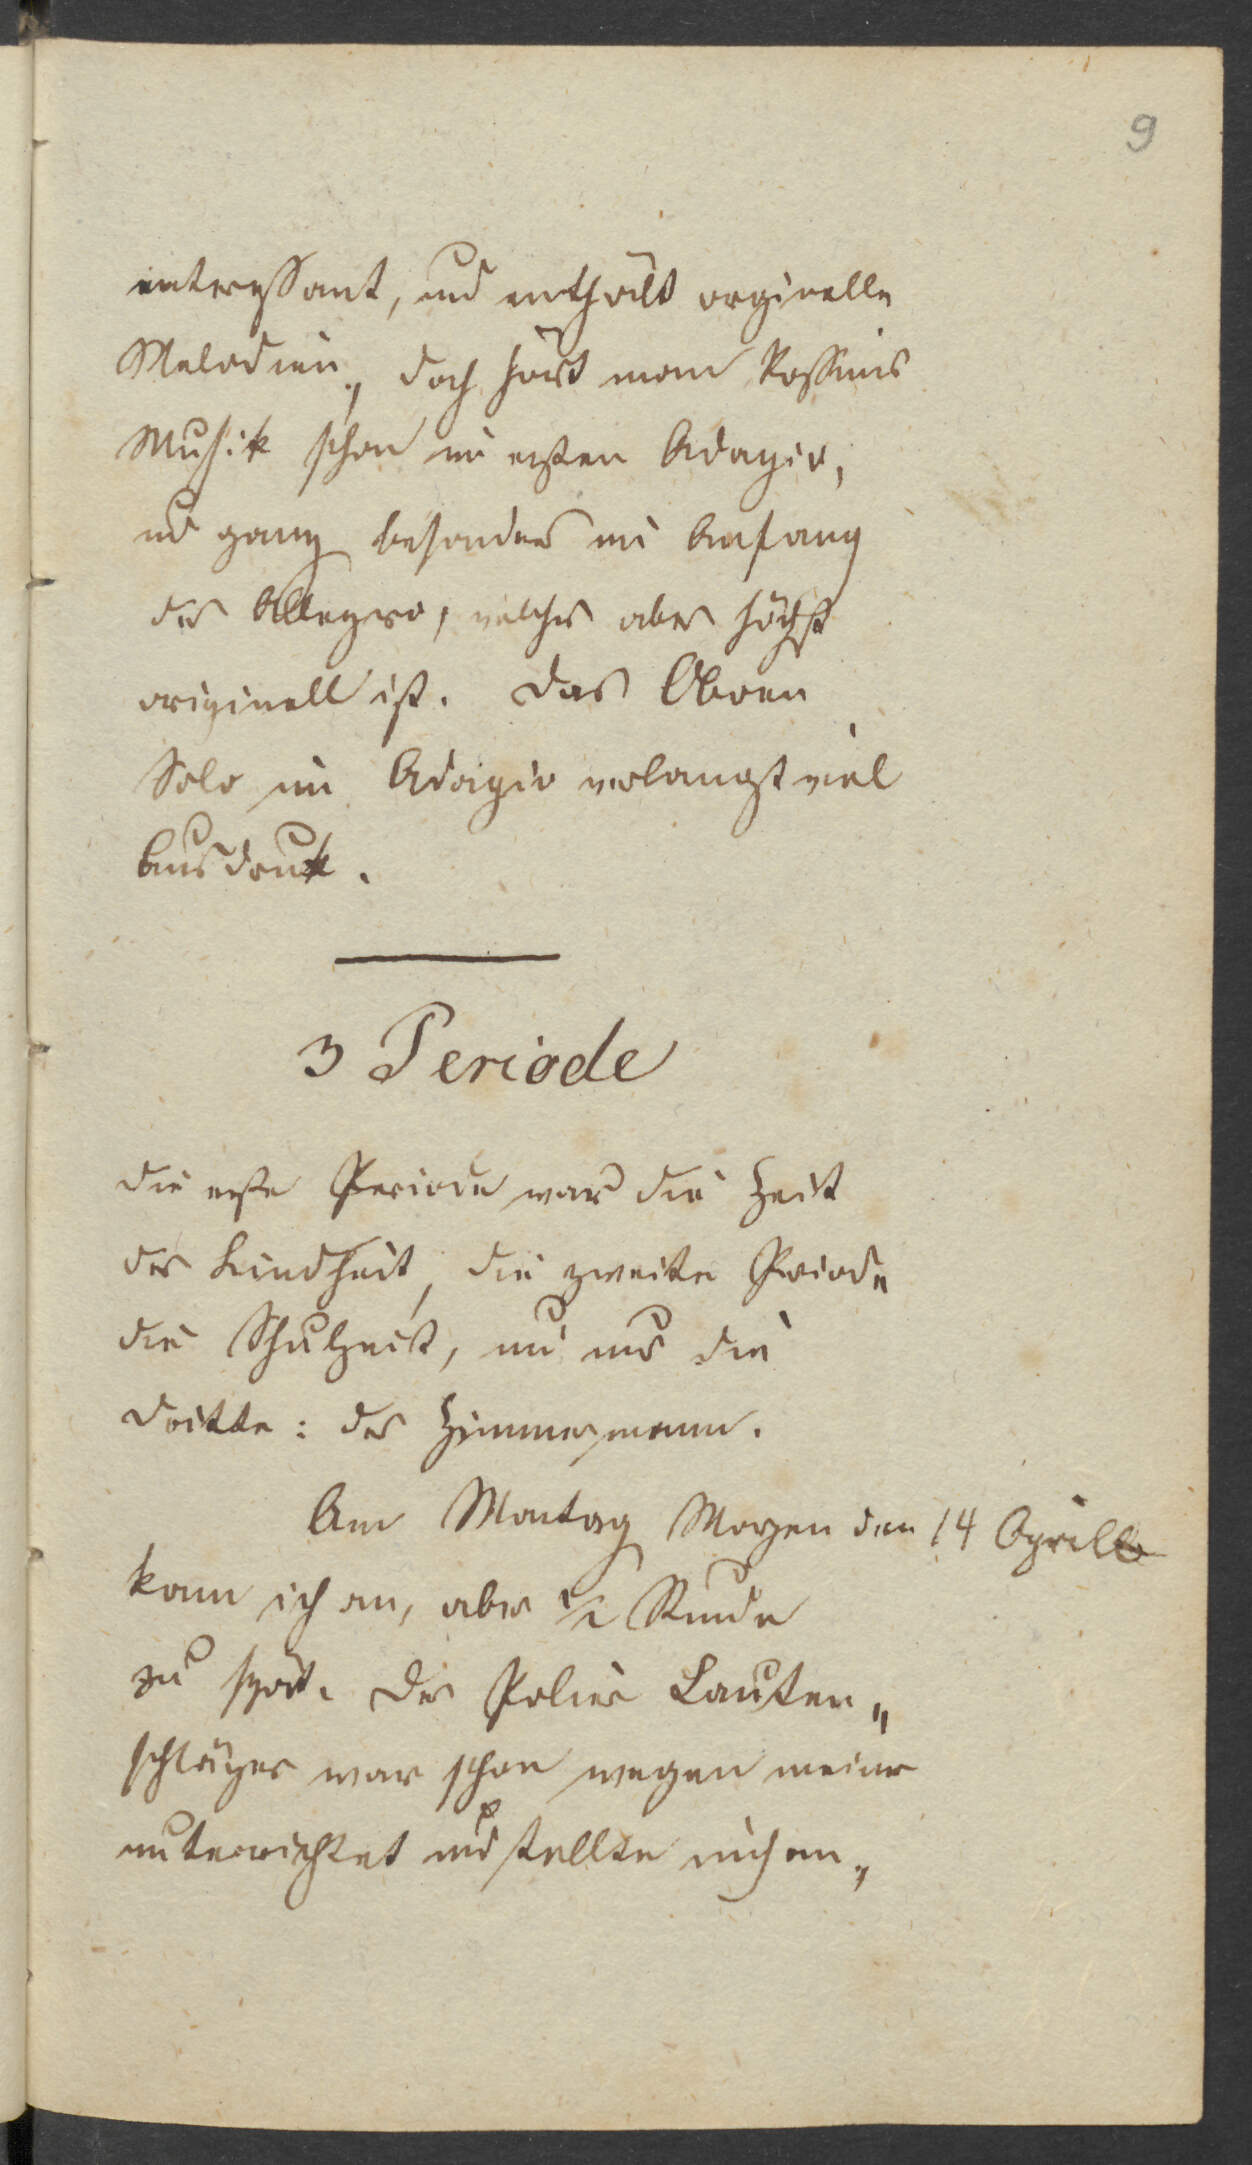 9
interessant, und enthält orginelle
Melodien, doch hört man Rossinis
Musik schon im ersten Adagio,
und ganz besonders im Anfang
des Allegro, welches aber höchst
originell ist. Das Oboen
Solo im Adagio verlangt viel
Ausdruk.
3 Periode
Die erste Periode war die Zeit
der Kindheit, die zweite Periode
die Schulzeit, nun die
dritte: der Zimmermann.
Am Montag Morgen den 14 April
kam ich an, aber 1/2 Stunde
zu spät. Der Polier Lauten„
schläger war schon wegen meiner
unterrichtet und stellte mich an„